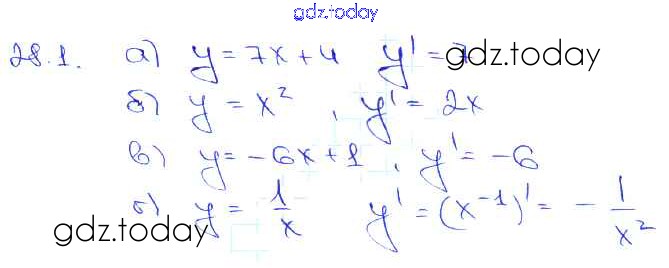 gdz.today
28.1. а) y = 7x + 4 y' = 7 gdz.today
б) y = x², y' = 2x
в) y = -6x + 1, y' = -6
г) y = 1/x y' = (x⁻¹)' = - 1/x²
gdz.today